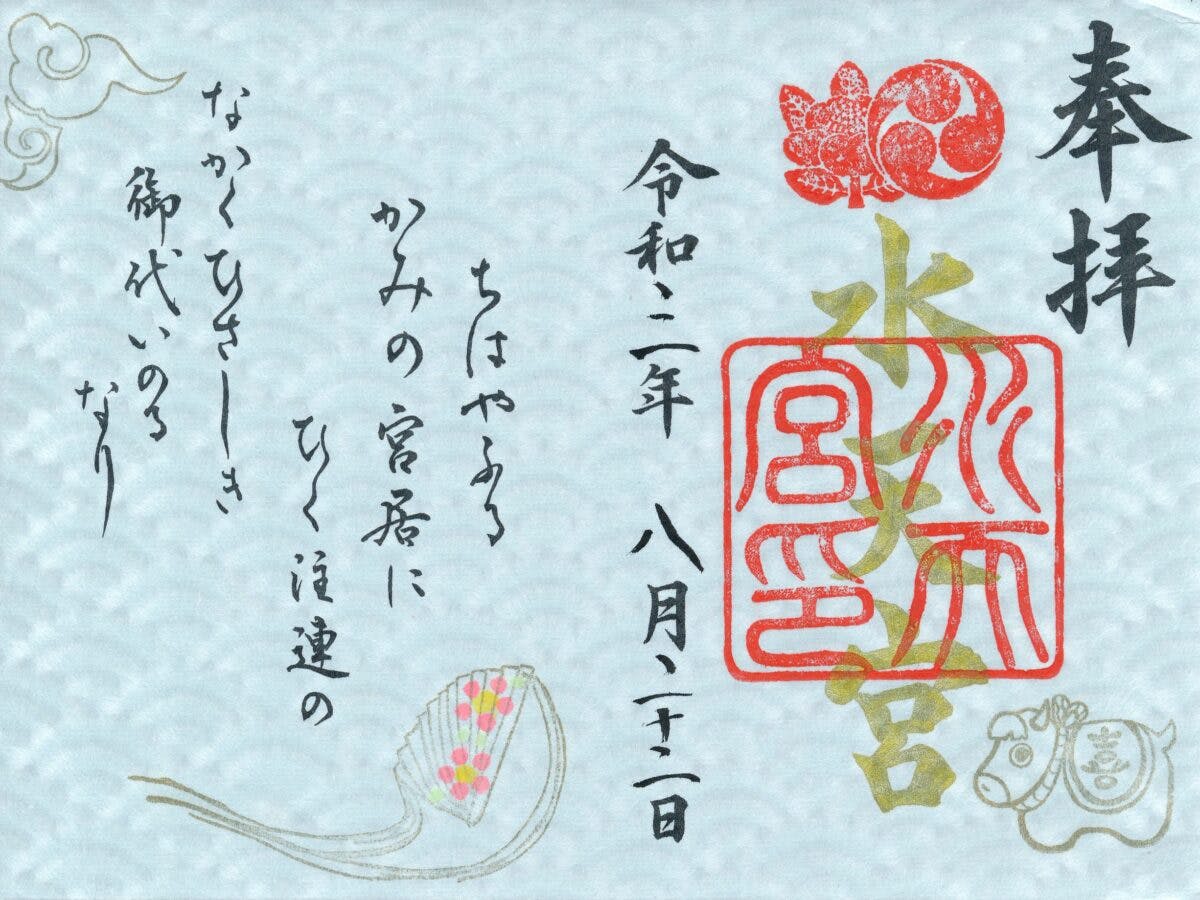 奉拝
水天宮
水天宮印
喜
令和二年 八月二十二日
ちはやふる
かみの宮居に
ひく注連の
なかくひさしき
御代いのる
なり